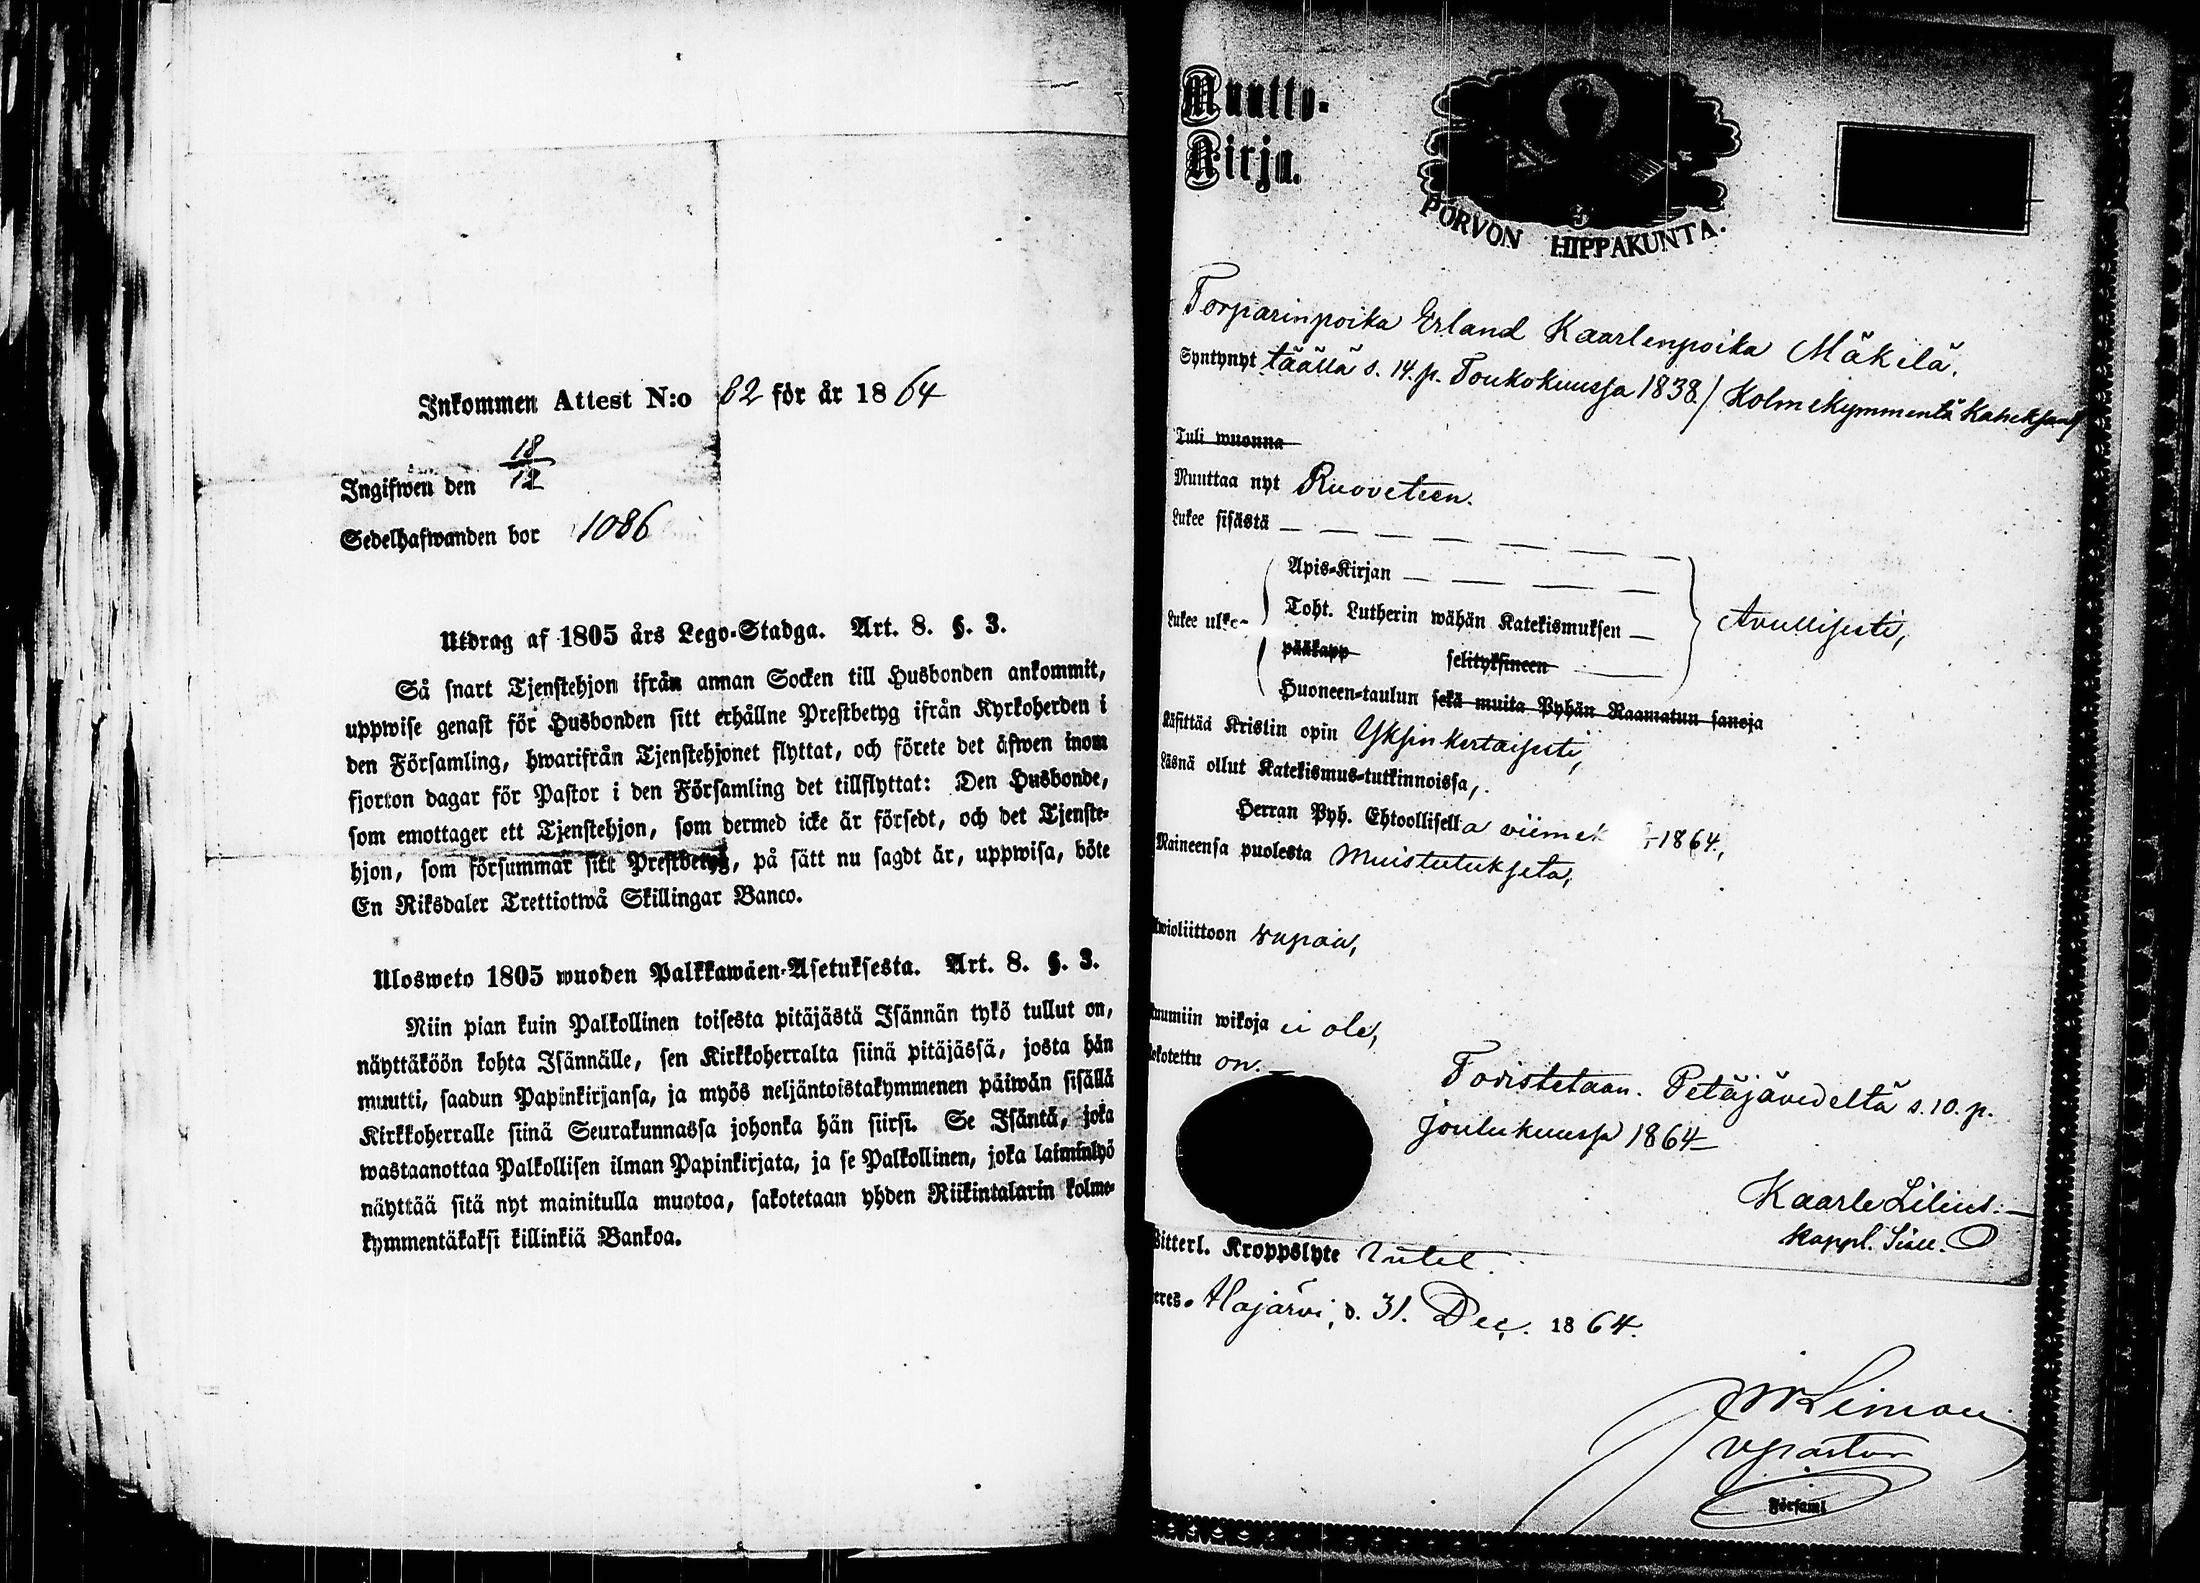 Inkommen Attest N:o 82 för år 1864
Ingifwen den 18/12
Sedelhafwanden bor 1086
Utdrag af 1805 års Lego-Stadga. Art. 8. §. 3.
Så snart Tjenstehjon ifrån annan Socken till Husbonden ankommit,
uppwise genast för Husbonden sitt erhållne Prestbetyg ifrån Kyrkoherden i
den Församling, hwarifrån Tjenstehjonet flyttat, och förete det äfwen inom
fjorton dagar för Pastor i den Församling det tillflyttat: Den Husbonde,
som emottager ett Tjenstehjon, som dermed icke är försedt, och det Tjenste-
hjon, som försummar sitt Prestbetyg, på sätt nu sagdt är, uppwisa, böte
En Riksdaler Trettiotwå Skillingar Banco.
Ulosweto 1805 wuoden Palkkawäen-Asetuksesta. Art. 8. §. 3.
Niin pian kuin Palkollinen toisesta pitäjästä Isännän tykö tullut on,
näyttäköön kohta Isännälle, sen Kirkkoherralta siinä pitäjässä, josta hän
muutti, saadun Papinkirjansa, ja myös neljäntoistakymmenen päiwän sisällä
Kirkkoherralle siinä Seurakunnassa johonka hän siirsi. Se Isäntä, joka
wastaanottaa Palkollisen ilman Papinkirjata, ja se Palkollinen, joka laiminlyö
näyttää sitä nyt mainitulla muotoa, sakotetaan yhden Riikintalarin kolme-
kymmentäkaksi killinkiä Bankoa.
Muutto-
Kirja.
PORVON HIPPAKUNTA.
Torparinpoika Erland Kaarlenpoika Mäkelä.
Syntynyt täällä s. 14. p. Toukokuussa 1838. / Kolmekymmentä Kaheksan/
Tuli wuonna
Muuttaa nyt Ruoveteen.
Lukee sisästä
Apis-Kirjan
Lukee ulko- Toht. Lutherin wähän Katekismuksen Avullisesti,
pääkapp selityksineen
Huoneen-taulun sekä muita Pyhän Raamatun sanoja
Käsittää Kristin opin Yksinkertaisesti,
Läsnä ollut Katekismus-tutkinnoissa,
Herran Pyh. Ehtoollisella viimek 1864,
Maineensa puolesta Muistutukseta,
Awioliittoon vapaa,
Ruumiin wikoja ei ole,
Rokotettu on.
Todistetaan. Petäjävedeltä s. 10. p.
Joulukuussa 1864
Kaarle Lilius.
Kappl. Siell.
Witterl. Kroppslyte Intet.
d. 31. Dec. 1864.
v pastor
Församl